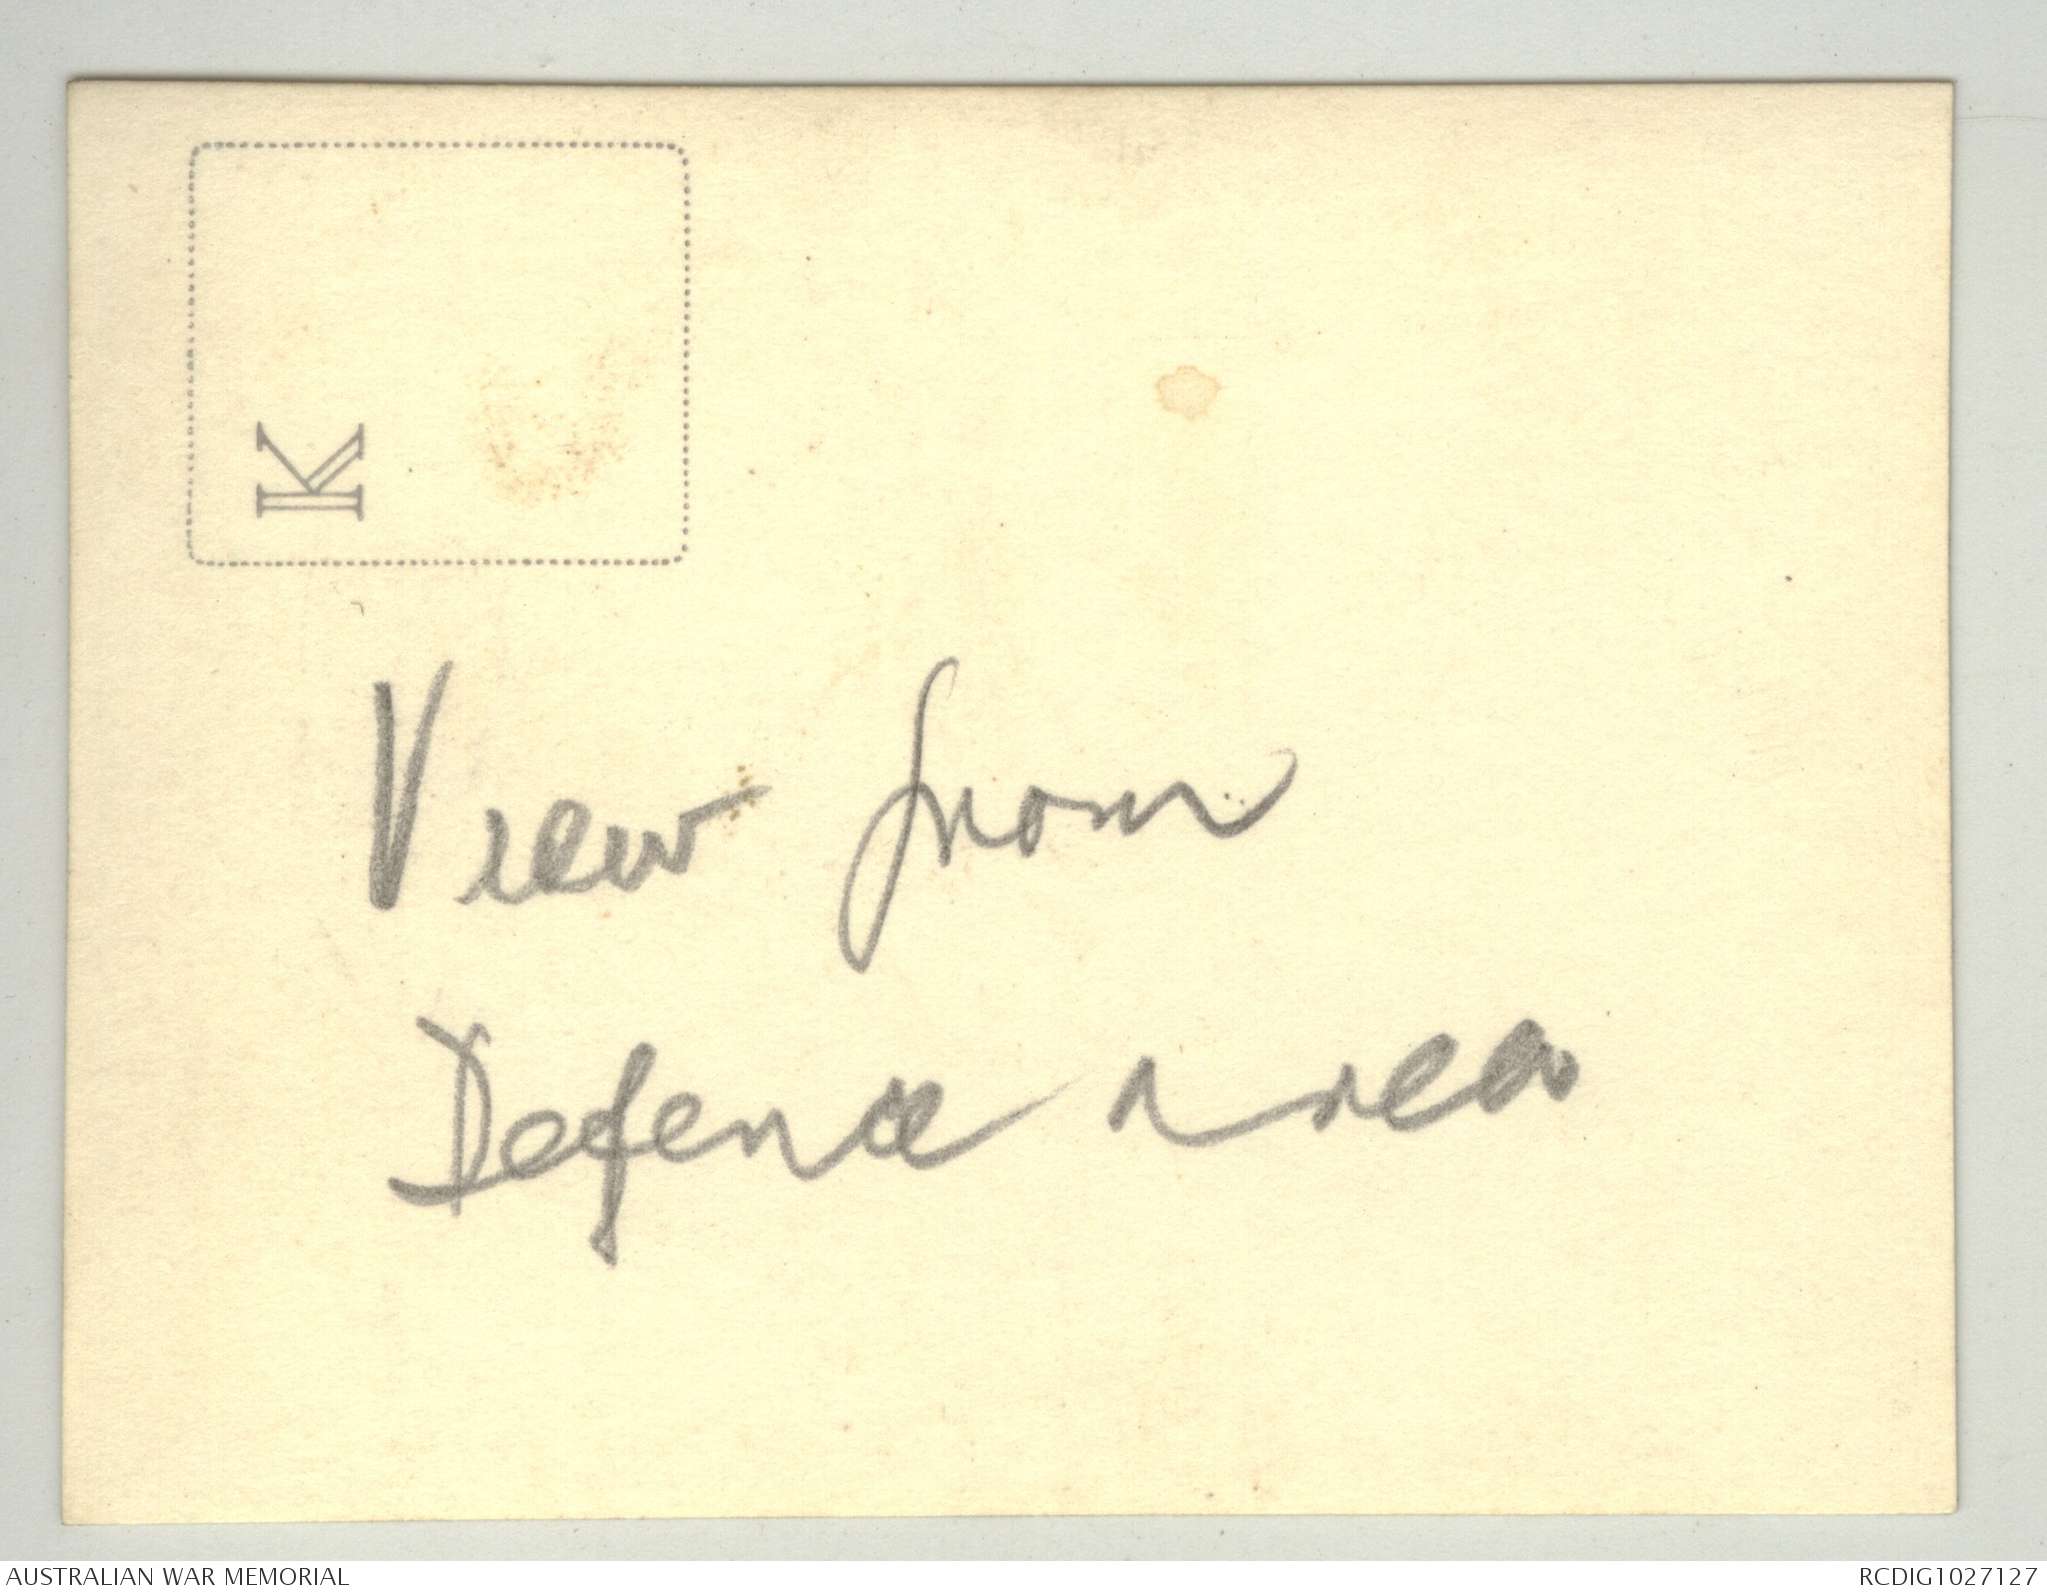 K
View from
Defence area
AUSTRALIAN WAR MEMORIAL
RCDIG1027127